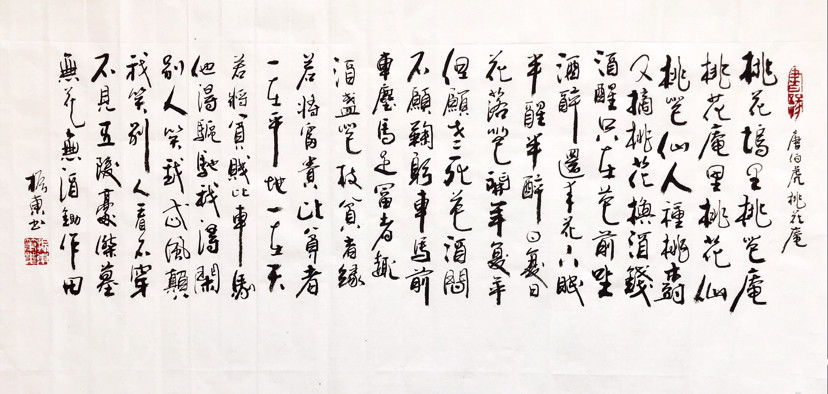 唐伯虎桃花庵
桃花塢里桃花庵
桃花庵里桃花仙
桃花仙人種桃樹
又摘桃花換酒錢
酒醒只在花前坐
酒醉還來花下眠
半醒半醉日复日
花落花開年复年
但願老死花酒間
不願鞠躬車馬前
車塵馬足富者趣
酒盞花枝貧者緣
若將富貴比貧者
一在平地一在天
若將貧賤比車馬
他得驅馳我得閑
別人笑我忒風顛
我笑別人看不穿
不見五陵豪傑墓
無花無酒鋤作田
振東書